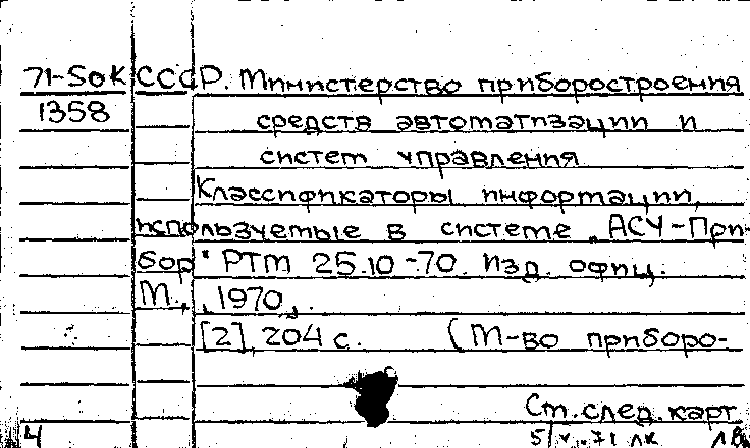 71-5ок СССР. Министерство приборостроения
1358 средств автоматизации и
систем управления
Классификаторы информации,
используемые в системе „АСУ-При-
бор" РТМ 25.10-70. Изд. офиц.
М., 1970.
[2], 204 с. (М-во приборо-
См. след. карт.
4 5/V-71 ЛК